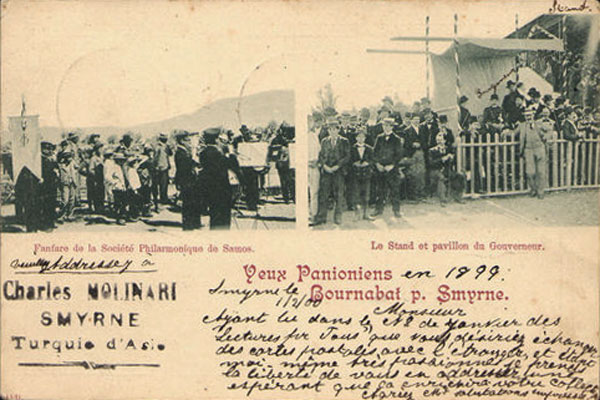 Stand.
Fanfare de la Société Philarmonique de Samos.
Le Stand et pavillon du Gouverneur.
Yeux Panioniens en 1899.
Bournabat p. Smyrne.
Addresser à
Charles MOLINARI
SMYRNE
Turquie d'Asie
Smyrne le
1/2/00
Monsieur
Ayant lu dans le No de Janvier des
Lectures pr Tous que vous désiriez échanger
des cartes postales avec l'étranger, et étant
moi-même très passionné je prends
la liberté de vous en adresser une
espérant que ça enrichira votre collec
salutations empressées